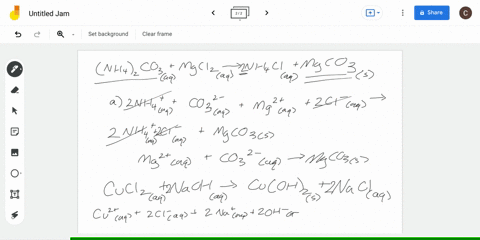 Untitled Jam
2/2
Share
C
Set background
Clear frame
(NH4)2CO3(aq) + MgCl2(aq) → 2NH4Cl(aq) + MgCO3(s)
a) 2NH4+(aq) + CO3 2-(aq) + Mg2+(aq) + 2Cl-(aq) →
2NH4+(aq) 2Cl-(aq) + MgCO3(s)
Mg2+(aq) + CO3 2-(aq) → MgCO3(s)
CuCl2(aq) + 2NaOH(aq) → Cu(OH)2(s) + 2NaCl(aq)
Cu2+(aq) + 2Cl-(aq) + 2Na+(aq) + 2OH-